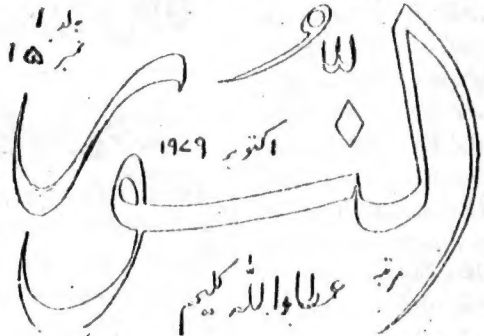 جلد ١
نمبر ١۵
النّور
اکتوبر ١٩٧٩
مرتبہ عطاء اللہ کلیم